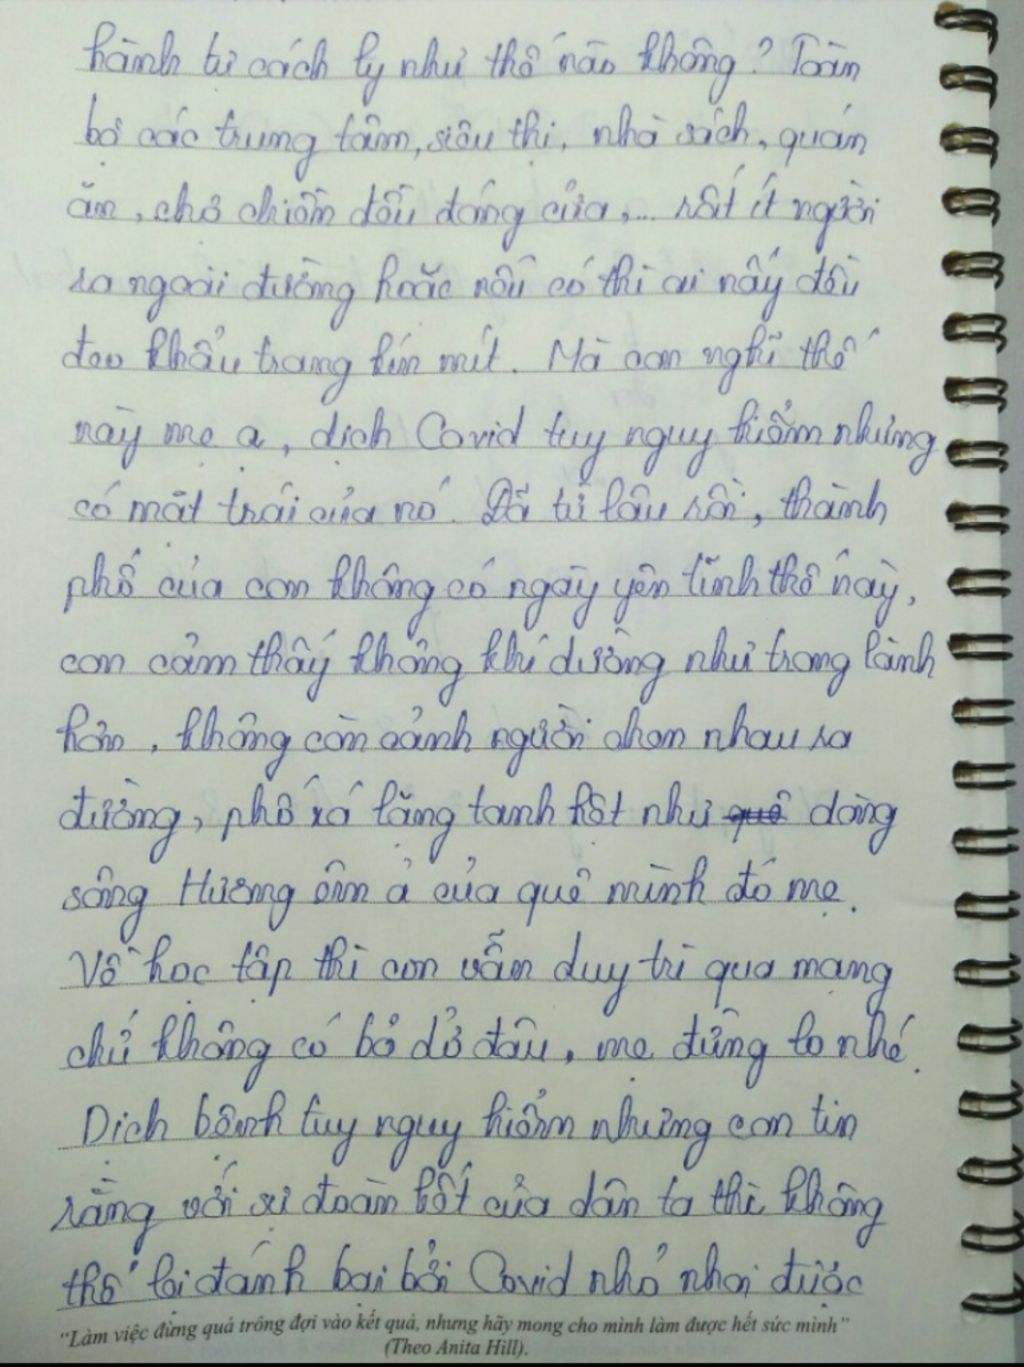 hành tự cách ly như thế nào không? Toàn
bộ các trung tâm, siêu thị, nhà sách, quán
ăn, chợ chiền đều đóng cửa,... rất ít người
ra ngoài đường hoặc nếu có thì ai nấy đều
đeo khẩu trang kín mít. Mà con nghĩ thế
này mẹ ạ, dịch Covid tuy nguy hiểm nhưng
có mặt trái của nó. Đã từ lâu rồi, thành
phố của con không có ngày yên tĩnh thế này,
con cảm thấy không khí dường như trong lành
hơn, không còn cảnh người chen nhau ra
đường, phố xá lặng tanh hệt như quê dòng
sông Hương êm ả của quê mình đó mẹ.
Về học tập thì con vẫn duy trì qua mạng
chứ không có bỏ dở đâu, mẹ đừng lo nhé.
Dịch bệnh tuy nguy hiểm nhưng con tin
rằng với sự đoàn kết của dân ta thì không
thể lại đánh bại bởi Covid nhỏ nhoi được
"Làm việc đừng quá trông đợi vào kết quả, nhưng hãy mong cho mình làm được hết sức mình"
(Theo Anita Hill).